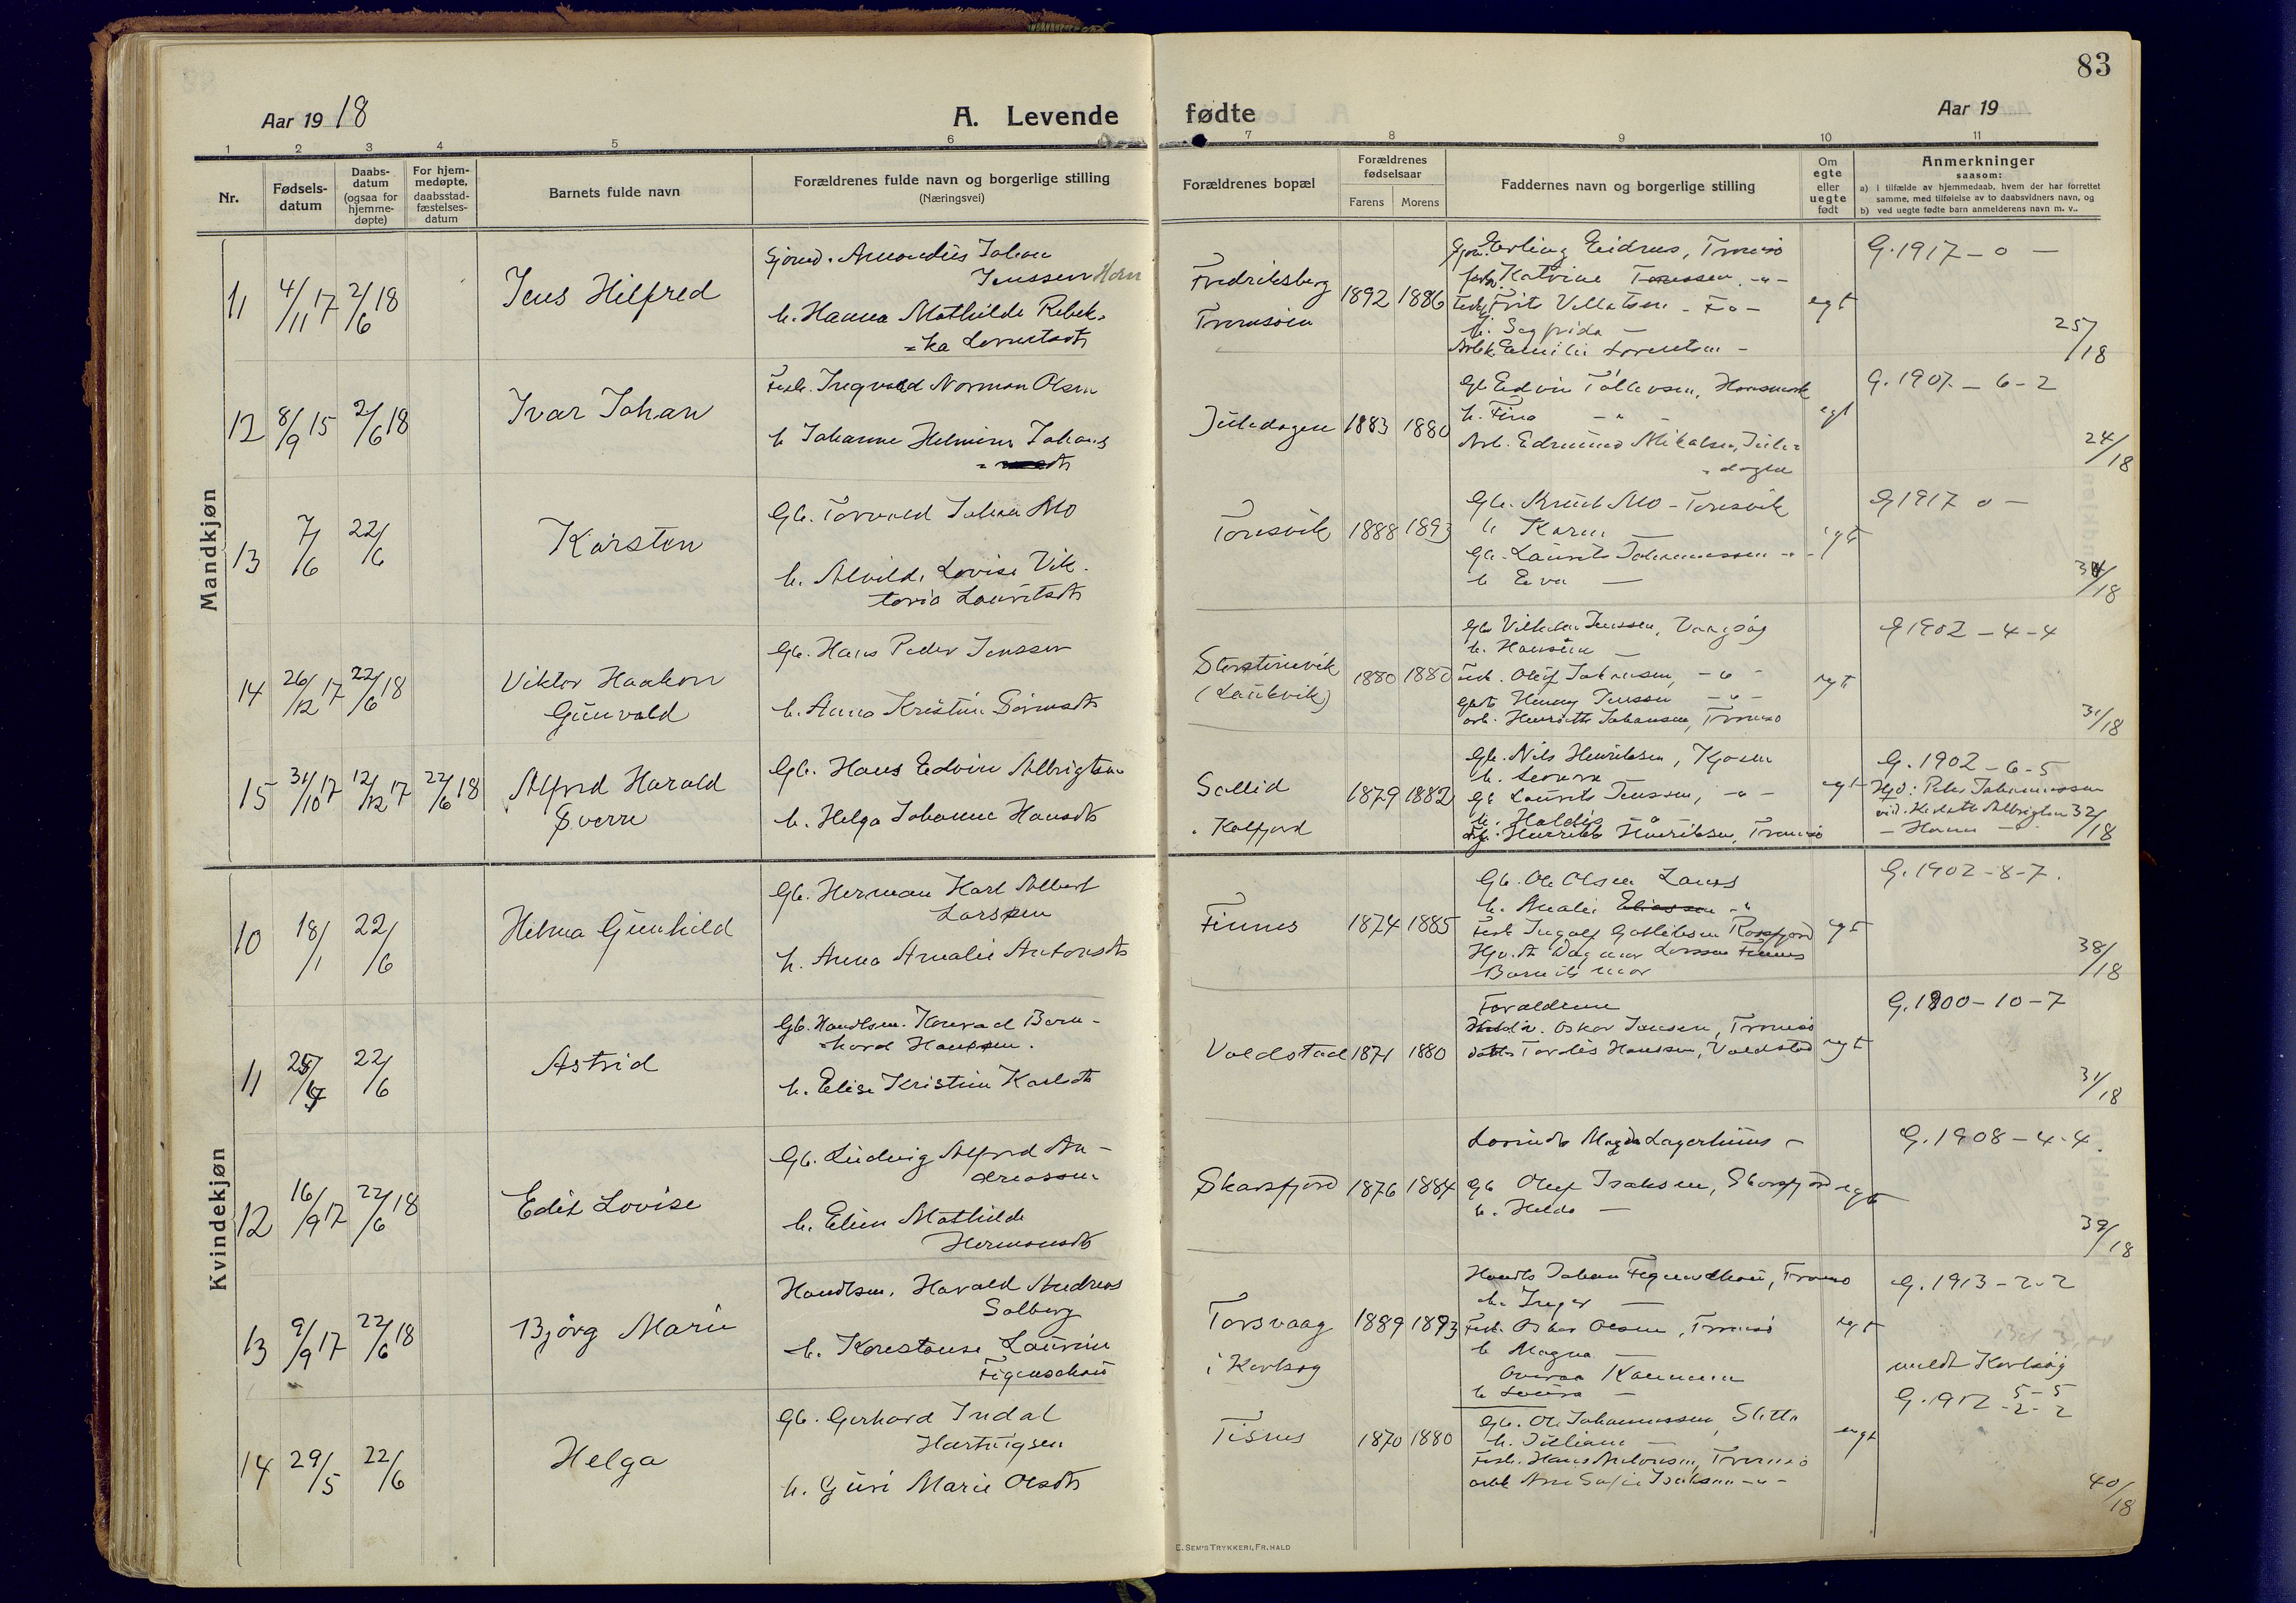 83
Aar 1918
A. Levende fødte
Aar 19
1 2 3 4 5 6 7 8 9 10 11
Nr.
Fødsels-
datum
Daabs-
datum
(ogsaa for
hjemme-
døpte)
For hjem-
medøpte,
daabsstad-
fæstelses-
datum
Barnets fulde navn
Forældrenes fulde navn og borgerlige stilling
(Næringsvei)
Forældrenes bopæl
Forældrenes
fødselsaar
Farens Morens
Faddernes navn og borgerlige stilling
Om
egte
eller
uegte
født
Anmerkninger
saasom:
a) i tilfælde av hjemmedaab, hvem der har forrettet
samme, med tilføielse av to daabsvidners navn, og
b) ved uegte fødte barn anmelderens navn m. v..
Mandkjøn
11 4/11 17 2/6 18
Jens Hilfred
Amandus Johan
Jenssen Horn
h. Hanna Mathilde Rebek-
=ka
Fredriksberg
Tromsøen
1892 1886
Erling Eidnes, Tromsø
Katrine
Frits
h. Sigfrida —
Emilie
egt
G. 1917 — 0 —
25/18
12 8/9 15 2/6 18
Ivar Johan
Fisk. Ingvald Norman Olsen
h Johanne Helmine Johans
Juledagen
1883 1880
Gb Edvin Tollevsen,
h. Fina
Arb. Edmund Mikalsen, Jule=
=dagen
egt
G. 1907 — 6-2
24/18
13 7/6 22/6
Karsten
Gb. Torvald Johan Mo
h. Alvilde Lovise Vik-
toria Lauritsdt
Tonsvik
1888 1893
Gb. Knut Mo - Tonsvik
h Karen —
Gb. Laurits Johannessen -"-
h Eva —
egt
G 1917 0 —
34/18
14 26/12 17 22/6 18
Viktor Haakon
Gunvald
Gb. Hans Peder Jenssen
h. Anna Kristine Sørensdt
(Laukvik)
1880 1880
Gb Vilhelm Jenssen,
h. Hansine —
Fisk. Oluf Johansen, -"-
Henny Jenssen -"-
arb. Henriette Johansen, Tromsø
egt
G 1902 — 4-4
31/18
15 31/10 17 12/12 17 22/6 18
Alfred Harald
Sverre
Gb. Hans Edvin Albrigtsen
h. Helga Johanne Hansdt
Sollid
i Kalfjord
1879 1882
Gb. Nils Henriksen, Kjosen
h. Leonora
Gb Laurits Jenssen, -"-
h. Haldis -"-
Henrik Henriksen, Tromsø
egt
G. 1902 - 6-5
Hjd: Peder Johannessen
32/18
Kvindekjøn
10 18/1 22/6
Helma Gunhild
Gb. Herman Karl Albert
Larssen
h. Anna Amalie Antonsdt
Finnes
1874 1885
Gb. Ole Olsen
h. Amalie Eliassen -"
Fisk Ingolf Gabrielsen
Dagmar Larssen Finnes
Barnets mor
egt
G. 1902 - 8-7.
38/18
11 25/4 22/6
Astrid
Gb. Handlsm. Konrad Bern-
=hard Hanssen.
h. Elise Kristine Karlsdt
Voldstad
1871 1880
Forældrene
Oskar Jensen, Tromsø
datter Tordis Hanssen, Voldstad
egt
G. 1900 - 10 - 7
31/18
12 16/9 17 22/6 18
Edit Lovise
Gb. Ludvig Alfred An-
dreassen
h. Eline Mathilde
Hermansdt
Skarsfjord
1876 1884
Magda Lagerhuus —
Gb Oluf Isaksen, Skarsfjord
h. Hilda —
egt
G. 1908 — 4-4
39/18
13 9/9 17 22/6 18
Bjørg Marie
Handlsm. Harald Andreas
Solberg
h. Konstanse Laurine
Figenschou
Torsvaag
i Karlsøy
1889 1893
Handls Johan Figenschou, Tromsø
h. Inger —
Fisk. Oskar Olsen, Tromsø
h Magna —
h Laura —
egt
G. 1913 - 2-2
meldt Karlsøy
14 29/5 22/6
Helga
Gb. Gerhard Indal
Hartvigsen
h. Guri Marie Olsdt
Tisnes
1870 1880
Gb. Ole Johannessen, Sletta
h. Juliane —
Fisk. Hans Antonsen, Tromsø
egt
G. 1912 5-5
-2-2
40/18
E. SEM'S TRYKKERI, FR.HALD